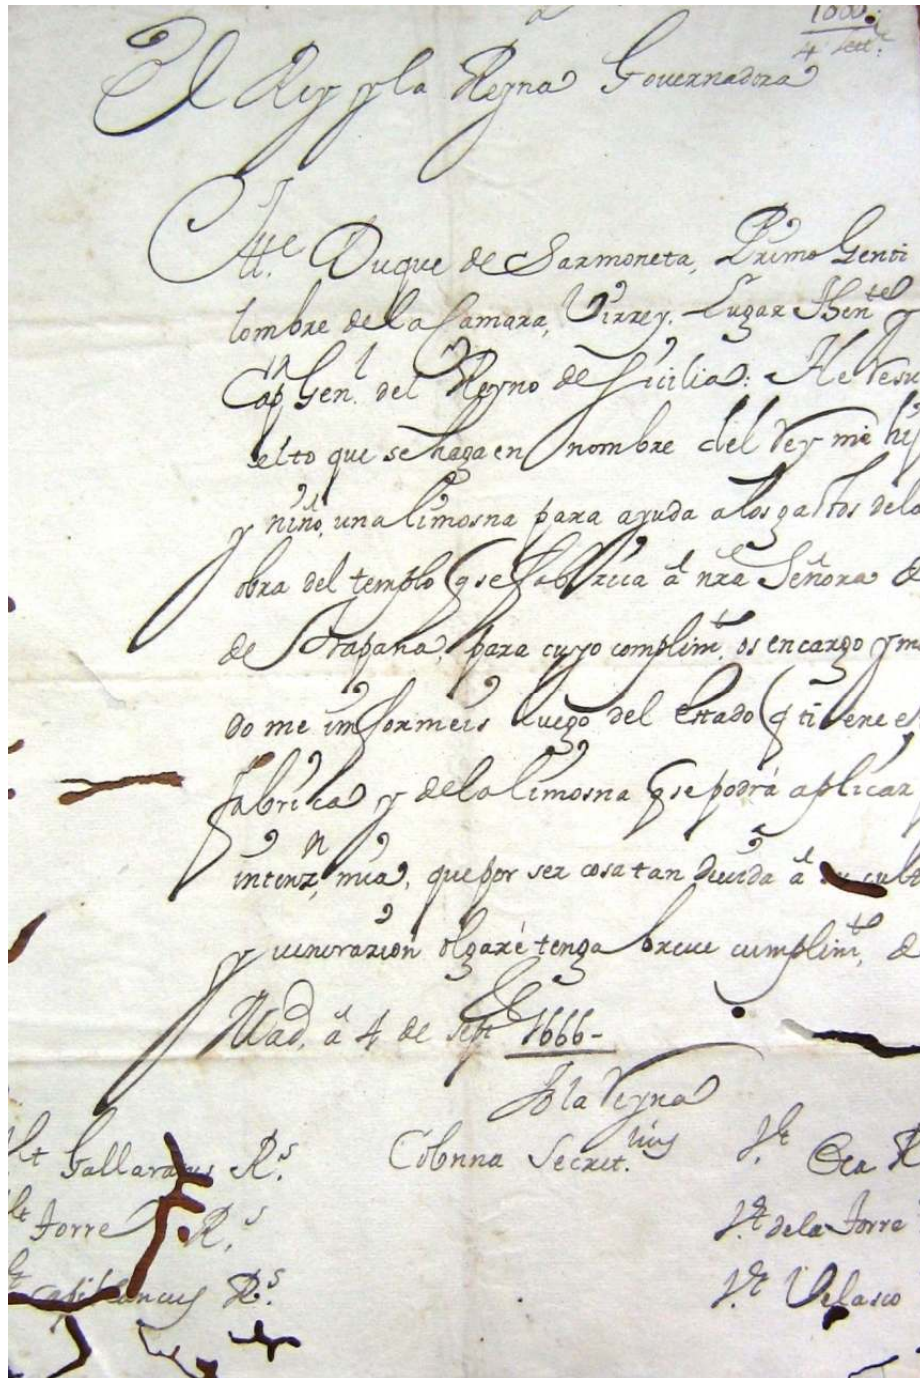 1666.
4 Sett.e
El Rey y la Reyna Governadora
Ill.e Duque de Sarmoneta, Primo Genti
lombre de la Camara, Virrey. Lugar Then.te y
Cap.n Gen.l del Reyno de Sicilia: He resu
elto que se haga en nombre del Rey mi hij
y niño, una limosna para ayuda a los gastos dela
obra del templo q se fabrica â nrã Señora
de Trapana, para cuyo complim.to os encargo y ma
do me informeis luego del estado q tiene es
fabrica y dela limosna q se podrà aplicar
intenz.n mia, que por ser cosa tan deuida â su cult
y veneraziòn olgarè tenga breue cumplim.to, de
Mad. â 4 de sept.e 1666-
Yo la Reyna
V.t Gallaratus R.s Colonna Secret.rius V.t Oca R
V.t Torre R.s V.t de la Torre
V.t R.s V.t Velasco